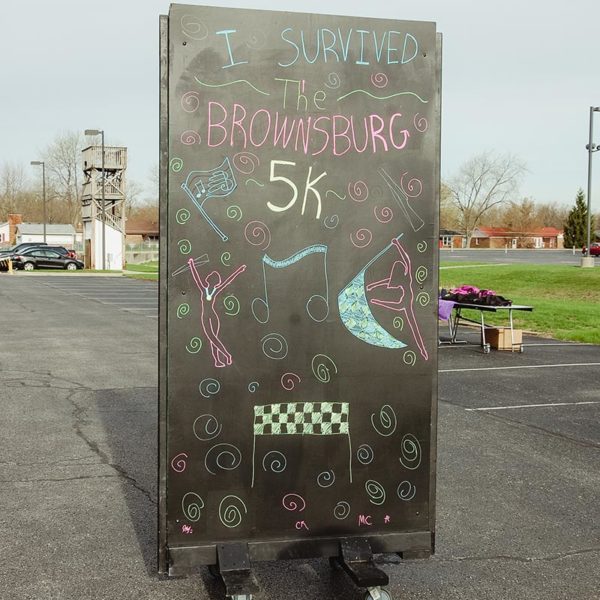 I SURVIVED
The
BROWNSBURG
5K
CA MC